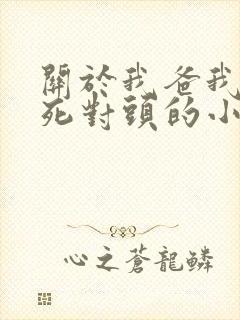 關於我爸我
死對頭的小
心之蒼龍鱗